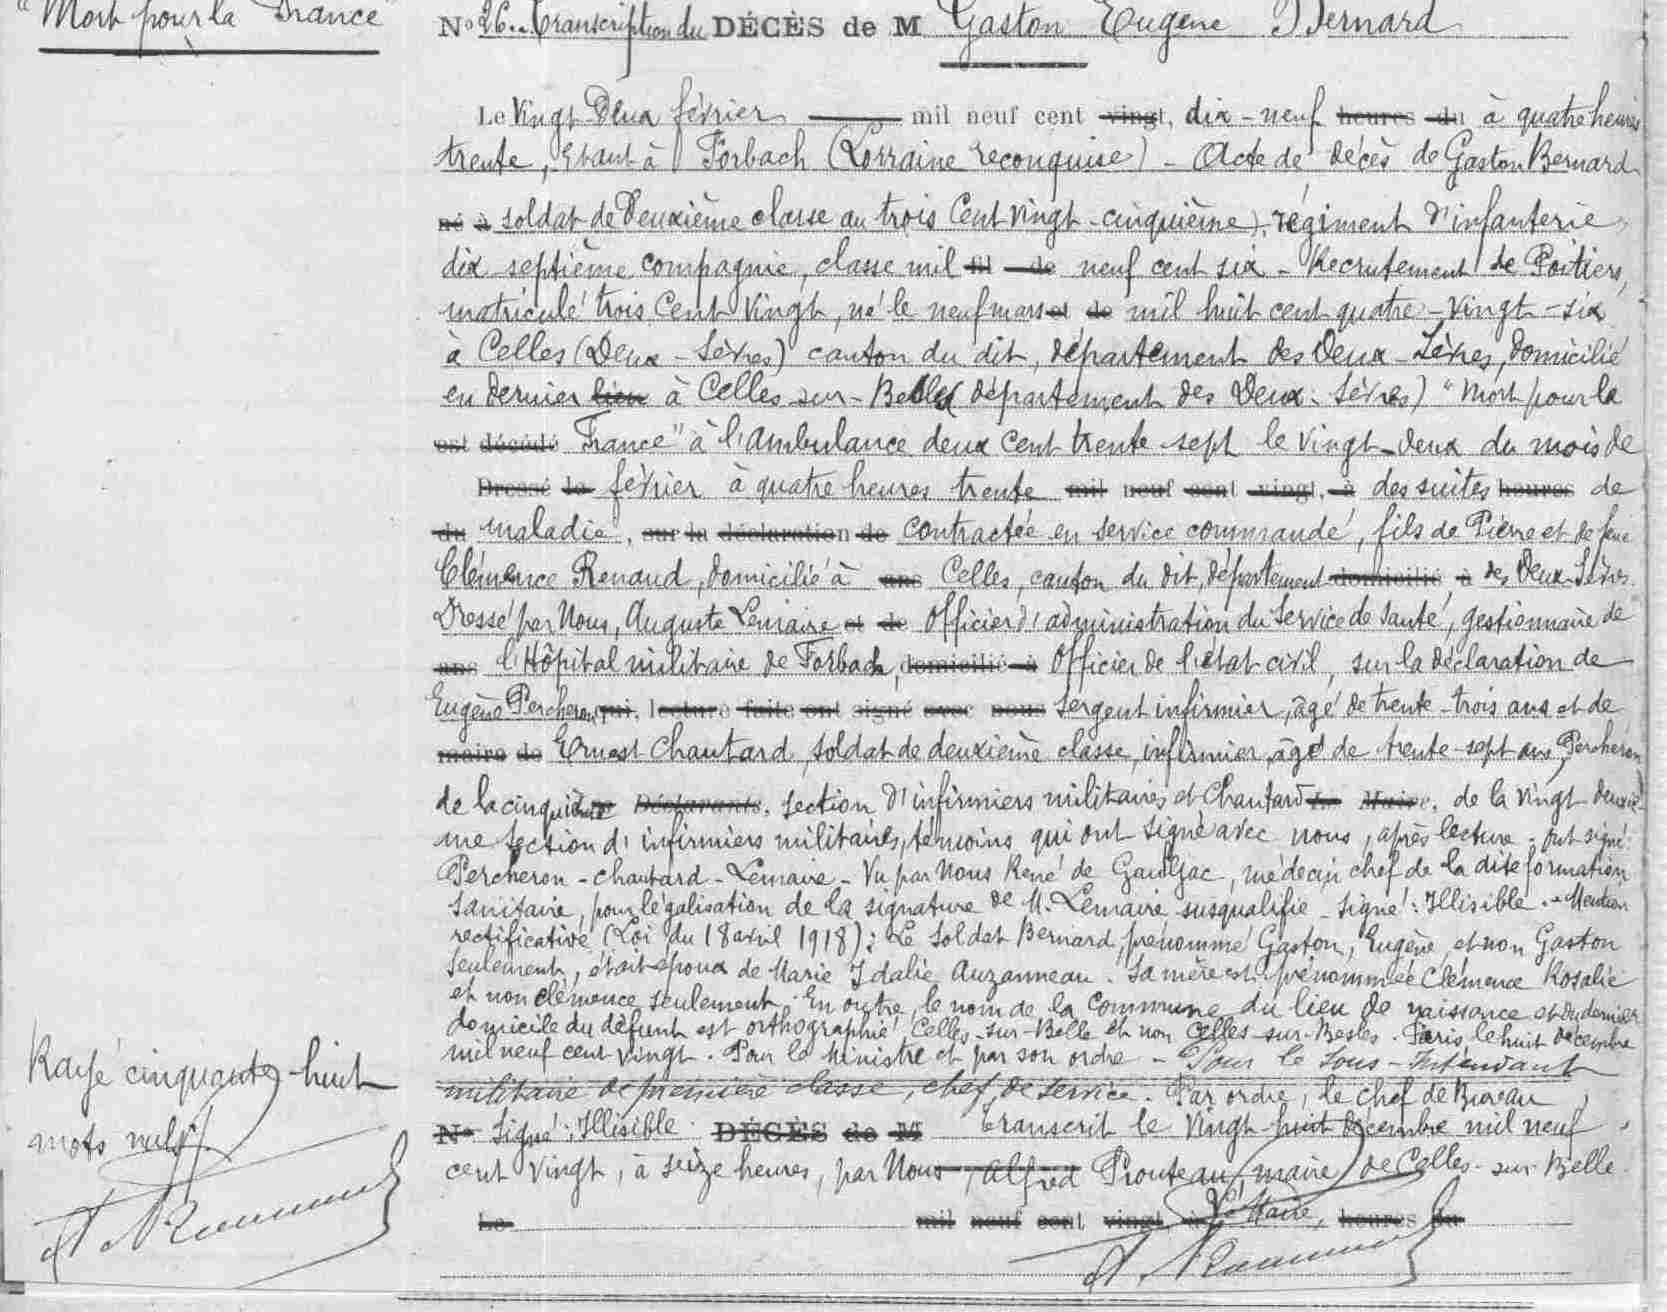 "Mort pour la France"
No 26. Transcription du DÉCÈS de M Gaston Eugène Bernard
Le Vingt Deux février mil neuf cent vingt, dix-neuf heures du à quatre heures
trente, étant à Forbach (Lorraine reconquise) - Acte de décès de Gaston Bernard
né à soldat de Deuxième classe au trois Cent Vingt-cinquième, régiment d'infanterie,
dix septième compagnie, classe mil fil de neuf cent six - Recrutement de Poitiers,
matricule trois Cent Vingt, né le neuf mars et de mil huit cent quatre-Vingt-six
à Celles (Deux-Sèvres) canton du dit, département des Deux-Sèvres, domicilié
en dernier lieu à Celles-sur-Belles (département des Deux-Sèvres) "Mort pour la
est décédé France" à l'ambulance deux cent trente-sept le vingt-deux du mois de
Dressé le février à quatre heures trente mil neuf cent vingt, à des suites heures de
du maladie, sur la déclaration de contractée en service commandé, fils de Pierre et de feue
Clémence Renaud, domicilié à ans Celles, canton du dit, département domicilié à des Deux-Sèvres.
Dressé par Nous, Auguste Lemaire et de Officier d'administration du Service de Santé, gestionnaire de
ans l'Hôpital militaire de Forbach, domicilié à Officier de l'état civil, sur la déclaration de
Eugène Percheron, qui, lecture faite ont signé avec nous Sergent infirmier, âgé de trente-trois ans et de
maire de Ernest Chautard, soldat de deuxième classe, infirmier, âgé de trente-sept ans, Percheron
de la cinquième Déclarants, section d'infirmiers militaires et Chautard Le Maire, de la Vingt deuxiè-
me section d'infirmiers militaires, témoins qui ont signé avec nous, après lecture. Ont signé:
Percheron - Chautard - Lemaire - Vu par Nous René de Gaulejac, médecin chef de la dite formation
sanitaire, pour légalisation de la signature de M. Lemaire susqualifié - signé: Illisible. - Mention
rectificative (Loi du 18 avril 1918): Le soldat Bernard, prénommé Gaston, Eugène, et non Gaston
seulement, était époux de Marie Idalie Auzanneau. Sa mère est prénommée Clémence Rosalie
et non Clémence seulement. En outre, le nom de la Commune du lieu de naissance et du dernier
domicile du défunt est orthographié Celles-sur-Belle et non Celles-sur-Besles. Paris, le huit décembre
mil neuf cent vingt. Pour le Ministre et par son ordre - Pour le Sous-Intendant
militaire de première classe, chef de service. Par ordre, le chef de Bureau
No Signé: Illisible. DÉCÈS de M Transcrit le Vingt huit Décembre mil neuf
cent vingt, à seize heures, par Nous, Alfred Prouteau, maire de Celles-sur-Belle.
Le Maire,
Le mil neuf cent vingt à heures du
Rayé cinquante-huit
mots nuls